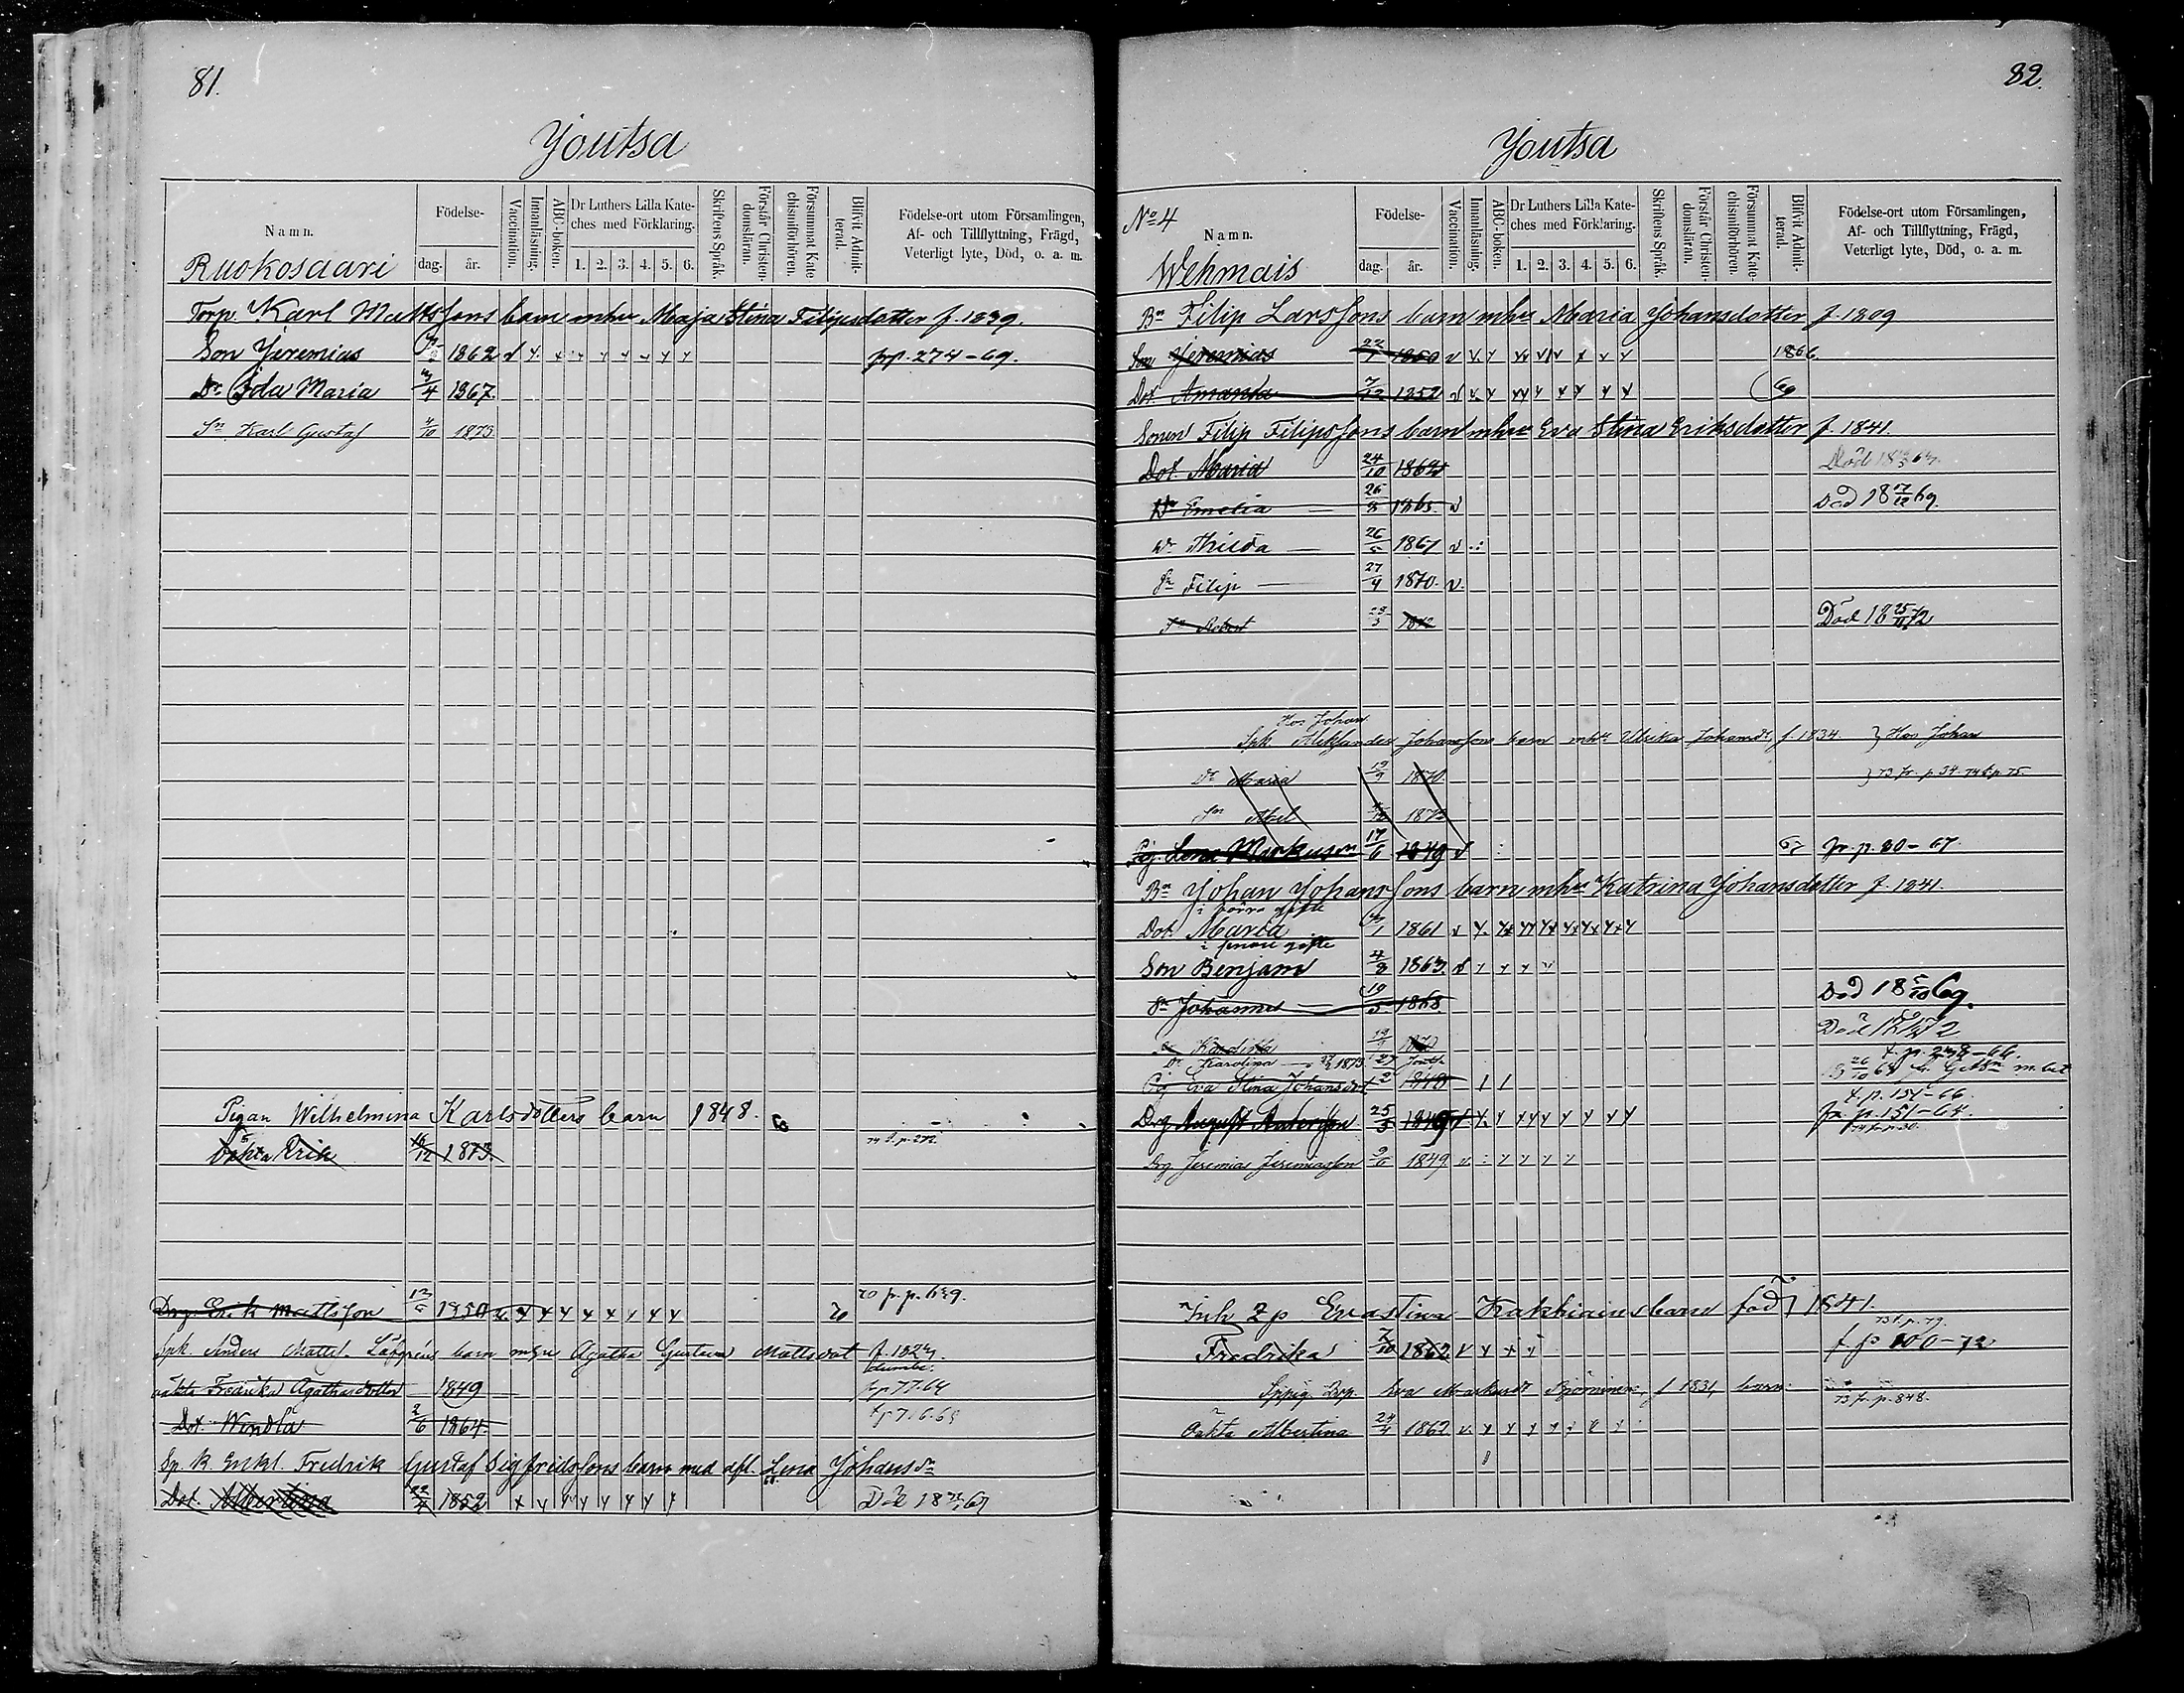 81.
Joutsa
Namn.
Födelse-
dag.
år.
Vaccination.
Innanläsning.
ABC-boken.
Dr Luthers Lilla Kate-
ches med Förklaring.
1. 2. 3. 4. 5. 6.
Skriftens Språk.
Förstår Christen-
domsläran.
Försummat Kate-
chismiförhören.
Blifvit Admit-
terad.
Födelse-ort utom Församlingen,
Af- och Tillflyttning, Frägd,
Veterligt lyte, Död, o. a. m.
Ruokosaari
Torp. Karl Mattssons barn mhu Maja Stina Filipsdotter f. 1839.
Son Jeremias 1862 frp. 274-69.
Dr Ida Maria 1867.
Sn Karl Gustaf 4/10 1873
Pigan Wilhelmina Karlsdotters barn 1848.
Oäkta Erik 16/12 1873. 74 t. p. 272.
Drg. Erik Mattsson 1850 70 70 fr. p. 639.
Spk. Anders Mattss. Löfgréns barn mhu Agatha Gustava Mattsdot f. 1823.
oäkta Fredrika Agathasdotter 1849 frp 77-64
Dot. Wendla 2/6 1864. tp 76-68
Sp. k. Enkl. Fredrik Gustaf Sigfridssons barn med afl. Lena Johansdr
Dot. Albertina 1852 Död 18 67
82.
Joutsa
No 4
Namn.
Födelse-
dag.
år.
Vaccination.
Innanläsning.
ABC-boken.
Dr Luthers Lilla Kate-
ches med Förklaring.
1. 2. 3. 4. 5. 6.
Skriftens Språk.
Förstår Christen-
domsläran.
Försummat Kate-
chismiförhören.
Blifvit Admit-
terad.
Födelse-ort utom Församlingen,
Af- och Tillflyttning, Frägd,
Veterligt lyte, Död, o. a. m.
Wehmais
Bn Filip Larssons barn mhu Maria Johansdotter f. 1809
Son Jeremias 1850 1866
Dot. Amanda 7/12 1852 69
Sonen Filip Filipssons barn mhu Eva Stina Eriksdotter f. 1841.
Dot. Maria 24/10 1862 Död
Dr Emelia 1865. Död 18 69.
Dr Thilda 26/5 1867
Sn Filip 27/4 1870.
Sn Robert 1872 Död 18 72
Hos Johan
Spk. Aleksander Johanssons barn mhu Ulrika Johansdr f. 1834. } Hos Johan
Dr Maria 1870. } 73 fr. p. 34. 74 t. p. 75.
Sn Abel 1873
Pig. Lena Markusdr 17/6 1849 67 fr. p. 80-67.
Bn Johan Johanssons barn mhu Katrina Johansdotter f. 1841.
i förra gifte
Dot. Maria 1861
i senare gifte
Son Benjam 4/8 1863.
Sn Johannes 19/5 1868 Död 18 5/10 69.
Död
Dr Karolina 1873
Pig Eva Stina Johansdot 1848 t. p. 238-66.
t. p. 151-66.
Drg August Andersson 25/3 1849 fr. p. 151-64.
74 fr. p. 30.
Drg Jeremias Jeremiasson 9/6 1849
Inh Zp Evastina Kakkiains barn född 1841.
73 t. p. 79.
Fredrika 7/10 1862 f p 100-72
Eva Markusdr Björninen, f 1831, barn
73 fr. p. 848.
Oäkta Albertina 24/4 1862